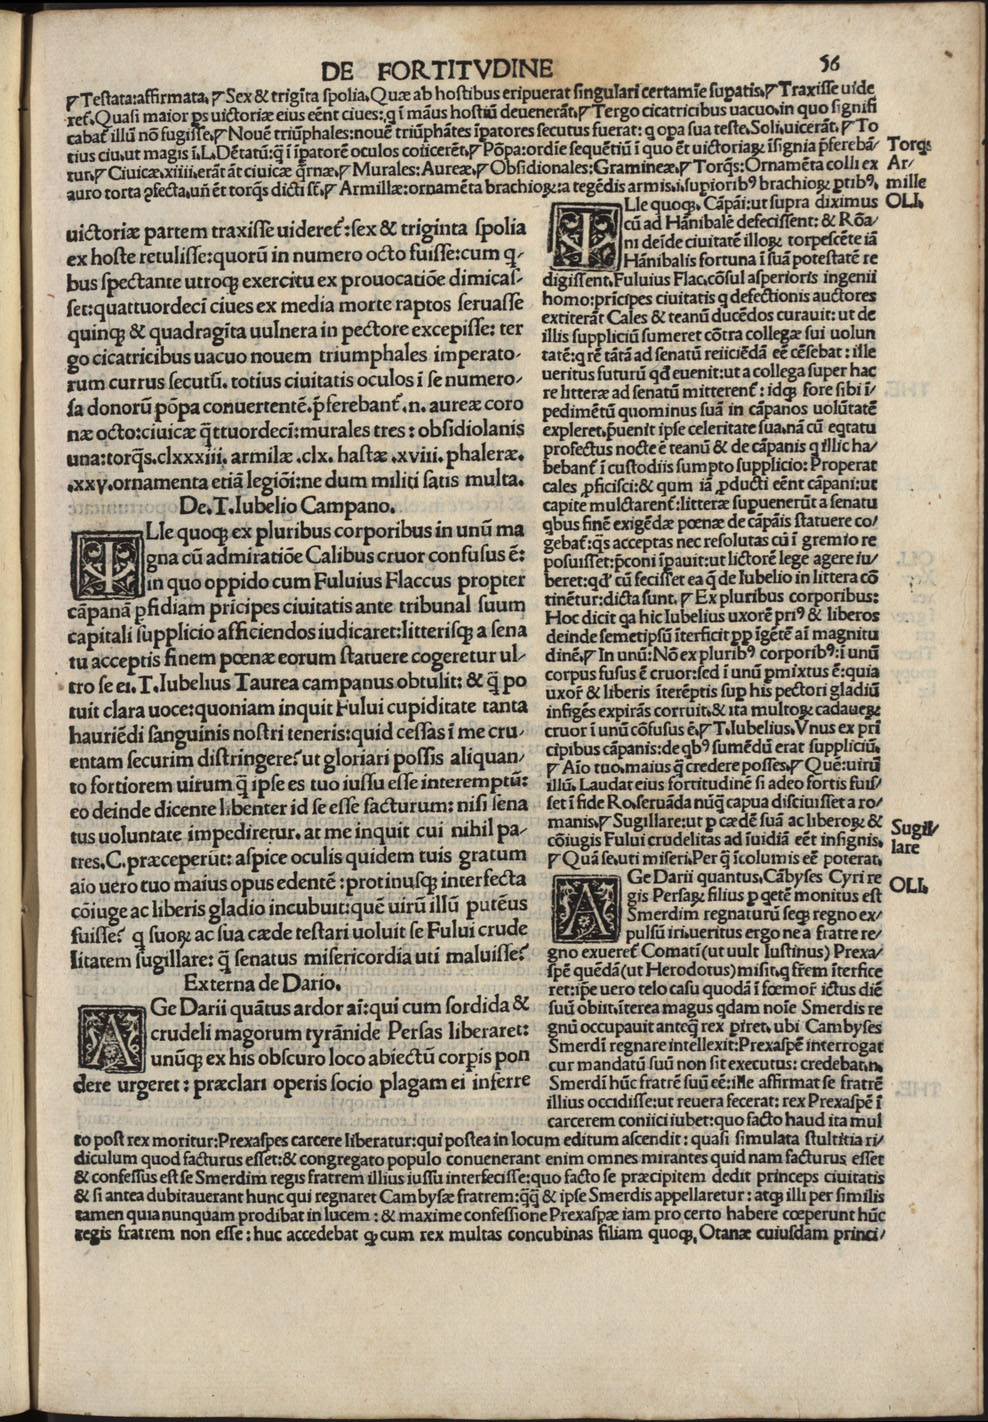 DE FORTITVDINE
56
⁋Testata:affirmata.⁋Sex & trigīta spolia.Quæ ab hostibus eripuerat singulari certamīe supatis.⁋Traxisse uide
ret̃.Quasi maior ps uictoriæ eius eēnt ciues:q ī māus hostiū deuenerāt.⁋Tergo cicatricibus uacuo.in quo signifi
cabat̃ illū nō fugisse.⁋Nouē triūphales:nouē triūphātes īpatores secutus fuerat: q opa sua teste.Soli.uicerāt.⁋To
tius ciu.ut magis ī.L.Dētatū:q̄ ī īpatorē oculos cōiicerēt.⁋Pōpa:ordīe sequētiū ī quo ēt uictoriaꝝ īsignia p̄ferebā/
tur.⁋Ciuicæ.xiiii.erāt āt ciuicæ q̄rnæ.⁋Murales:Aureæ.⁋Obsidionales:Gramineæ.⁋Torq̄s:Ornamēta colli ex
auro torta ꝯfecta.uñ ēt torq̄s dicti sūt.⁋Armillæ:ornamēta brachioꝝ:a tegēdis armis.i.supiorib⁹ brachioꝝ ptib⁹.
Torq̄s
Ar/
mille
OLI.
uictoriæ partem traxisse uideret̃:sex & triginta spolia
ex hoste retulisse:quorū in numero octo fuisse:cum q/
bus spectante utroqꝫ exercitu ex prouocatiōe dimicas/
set:quattuordecī ciues ex media morte raptos seruasse
quinqꝫ & quadragīta uulnera in pectore excepisse: ter
go cicatricibus uacuo nouem triumphales imperato/
rum currus secutū. totius ciuitatis oculos ī se numero/
sa donorū pōpa conuertentē.p̄ferebant̃.n. aureæ coro
næ octo:ciuicæ q̄ttuordecī:murales tres: obsidiolanis
una:torq̄s.clxxxiii. armilæ .clx. hastæ .xviii. phaleræ.
.xxv.ornamenta etiā legiōi:ne dum militi satis multa.
De.T.Iubelio Campano.
ILle quoqꝫ ex pluribus corporibus in unū ma
gna cū admiratiōe Calibus cruor confusus ē:
in quo oppido cum Fuluius Flaccus propter
cāpanā ꝑfidiam pricipes ciuitatis ante tribunal suum
capitali supplicio afficiendos iudicaret:litterisqꝫ a sena
tu acceptis finem pœnæ eorum statuere cogeretur ul/
tro se ei.T.Iubelius Taurea campanus obtulit: & q̄ po
tuit clara uoce:quoniam inquit Fului cupiditate tanta
hauriēdi sanguinis nostri teneris:quid cessas ī me cru/
entam securim distringere?ut gloriari possis aliquan/
to fortiorem uirum q̄ ipse es tuo iussu esse interemptū:
eo deinde dicente libenter id se esse facturum: nisi sena
tus uoluntate impediretur. at me inquit cui nihil pa/
tres.C.præceperūt: aspice oculis quidem tuis gratum
aio uero tuo maius opus edentē:protinusqꝫ interfecta
cōiuge ac liberis gladio incubuit:quē uirū illū putēus
fuisse? q suoꝝ ac sua cæde testari uoluit se Fului crude
litatem sugillare: q̄ senatus misericordia uti maluisse?
Externa de Dario.
AGe Darii quātus ardor aī:qui cum sordida &
crudeli magorum tyrānide Persas liberaret:
unūqꝫ ex his obscuro loco abiectū corpis pon
dere urgeret: præclari operis socio plagam ei inferre
ILle quoqꝫ.Cāpāi:ut supra diximus
cū ad Hānibalē defecissent: & Rōa/
ni deīde ciuitatē illoꝝ torpescēte iā
Hānibalis fortuna ī suā potestatē re
digissent.Fuluius Flac.cōsul asperioris ingenii
homo:prīcipes ciuitatis q defectionis auctores
extiterāt Cales & teanū ducēdos curauit: ut de
illis suppliciū sumeret cōtra collegæ sui uolun
tatē:q rē tātā ad senatū reiiciēdā eē cēsebat: ille
ueritus futurū qđ euenit:ut a collega super hac
re litteræ ad senatū mitterent̃: idqꝫ fore sibi ī/
pedimētū quominus suā in cāpanos uolūtatē
expleret.p̄uenit ipse celeritate sua.nā cū eqtatu
profectus nocte ē teanū & de cāpanis q illic ha/
bebant̃ ī custodiis sumpto supplicio: Properat
cales ꝓficisci:& qum iā ꝓducti eēnt cāpani:ut
capite mulctarent̃:litteræ supuenerūt a senatu
qbus finē exigēdæ pœnæ de cāpāis statuere co/
gebat̃:q̄s acceptas nec resolutas cū ī gremio re
posuisset:p̄coni īpauit:ut lictorē lege agere iu/
beret:qđ cū fecisset ea q̄ de Iubelio in littera cō
tinētur:dicta sunt.⁋Ex pluribus corporibus:
Hoc dicit qa hic Iubelius uxorē pri⁹ & liberos
deinde semetipsū īterficit ꝓp īgētē aī magnitu
dinē.⁋In unū:Nō ex plurib⁹ corporib⁹:ī unū
corpus fusus ē cruor:sed ī unū pmixtus ē:quia
uxor̃ & liberis īterēptis sup his pectori gladiū
infigēs expirās corruit.& ita multoꝝ cadaueꝝ
cruor ī unū cōfusus ē.⁋T.Iubelius.Vnus ex pri
cipibus cāpanis:de qb⁹ sumēdū erat suppliciū.
⁋Aīo tuo.maius q̄ credere posses.⁋Quē:uirū
illū. Laudat eius fortitudinē si adeo fortis fuis/
set ī fide Ro.seruāda nūq̄ capua disciuisset a ro/
manis.⁋Sugillare:ut p cædē suā ac liberoꝝ &
cōiugis Fului crudelitas ad īuidiā eēt insignis.
⁋Quā se.uti miseri.Per q̄ īcolumis eē poterat.
Sugil/
lare
AGe Darii quantus.Cābyses Cyri re
gis Persaꝝ filius p qetē monitus est
Smerdim regnaturū seqꝫ regno ex/
pulsū iri.ueritus ergo ne a fratre re/
OLI.
gno exueret̃ Comatī(ut uult Iustinus) Prexa/
spē quēdā(ut Herodotus)misit.q frem īterfice
ret:ipe uero telo casu quodā ī fœmor̃ ictus diē
suū obiit.īterea magus qdam noīe Smerdis re
gnū occupauit anteq̄ rex piret.ubi Cambyses
Smerdī regnare intellexit:Prexaspē interrogat
cur mandatū suū non sit executus: credebat.n.
Smerdī hūc fratrē suū eē:ille affirmat se fratrē
illius occidisse:ut reuera fecerat: rex Prexaspē ī
carcerem coniici iubet:quo facto haud ita mul
to post rex moritur:Prexaspes carcere liberatur:qui postea in locum editum ascendit: quasi simulata stultitia ri/
diculum quod facturus esset:& congregato populo conuenerant enim omnes mirantes quid nam facturus esset
& confessus est se Smerdim regis fratrem illius iussu interfecisse:quo facto se præcipitem dedit princeps ciuitatis
& si antea dubitauerant hunc qui regnaret Cambysæ fratrem:q̄q̄ & ipse Smerdis appellaretur: atqꝫ illi per similis
tamen quia nunquam prodibat in lucem: & maxime confessione Prexaspæ iam pro certo habere cœperunt hūc
regis fratrem non esse: huc accedebat qꝫ cum rex multas concubinas filiam quoqꝫ. Otanæ cuiusdam princi/